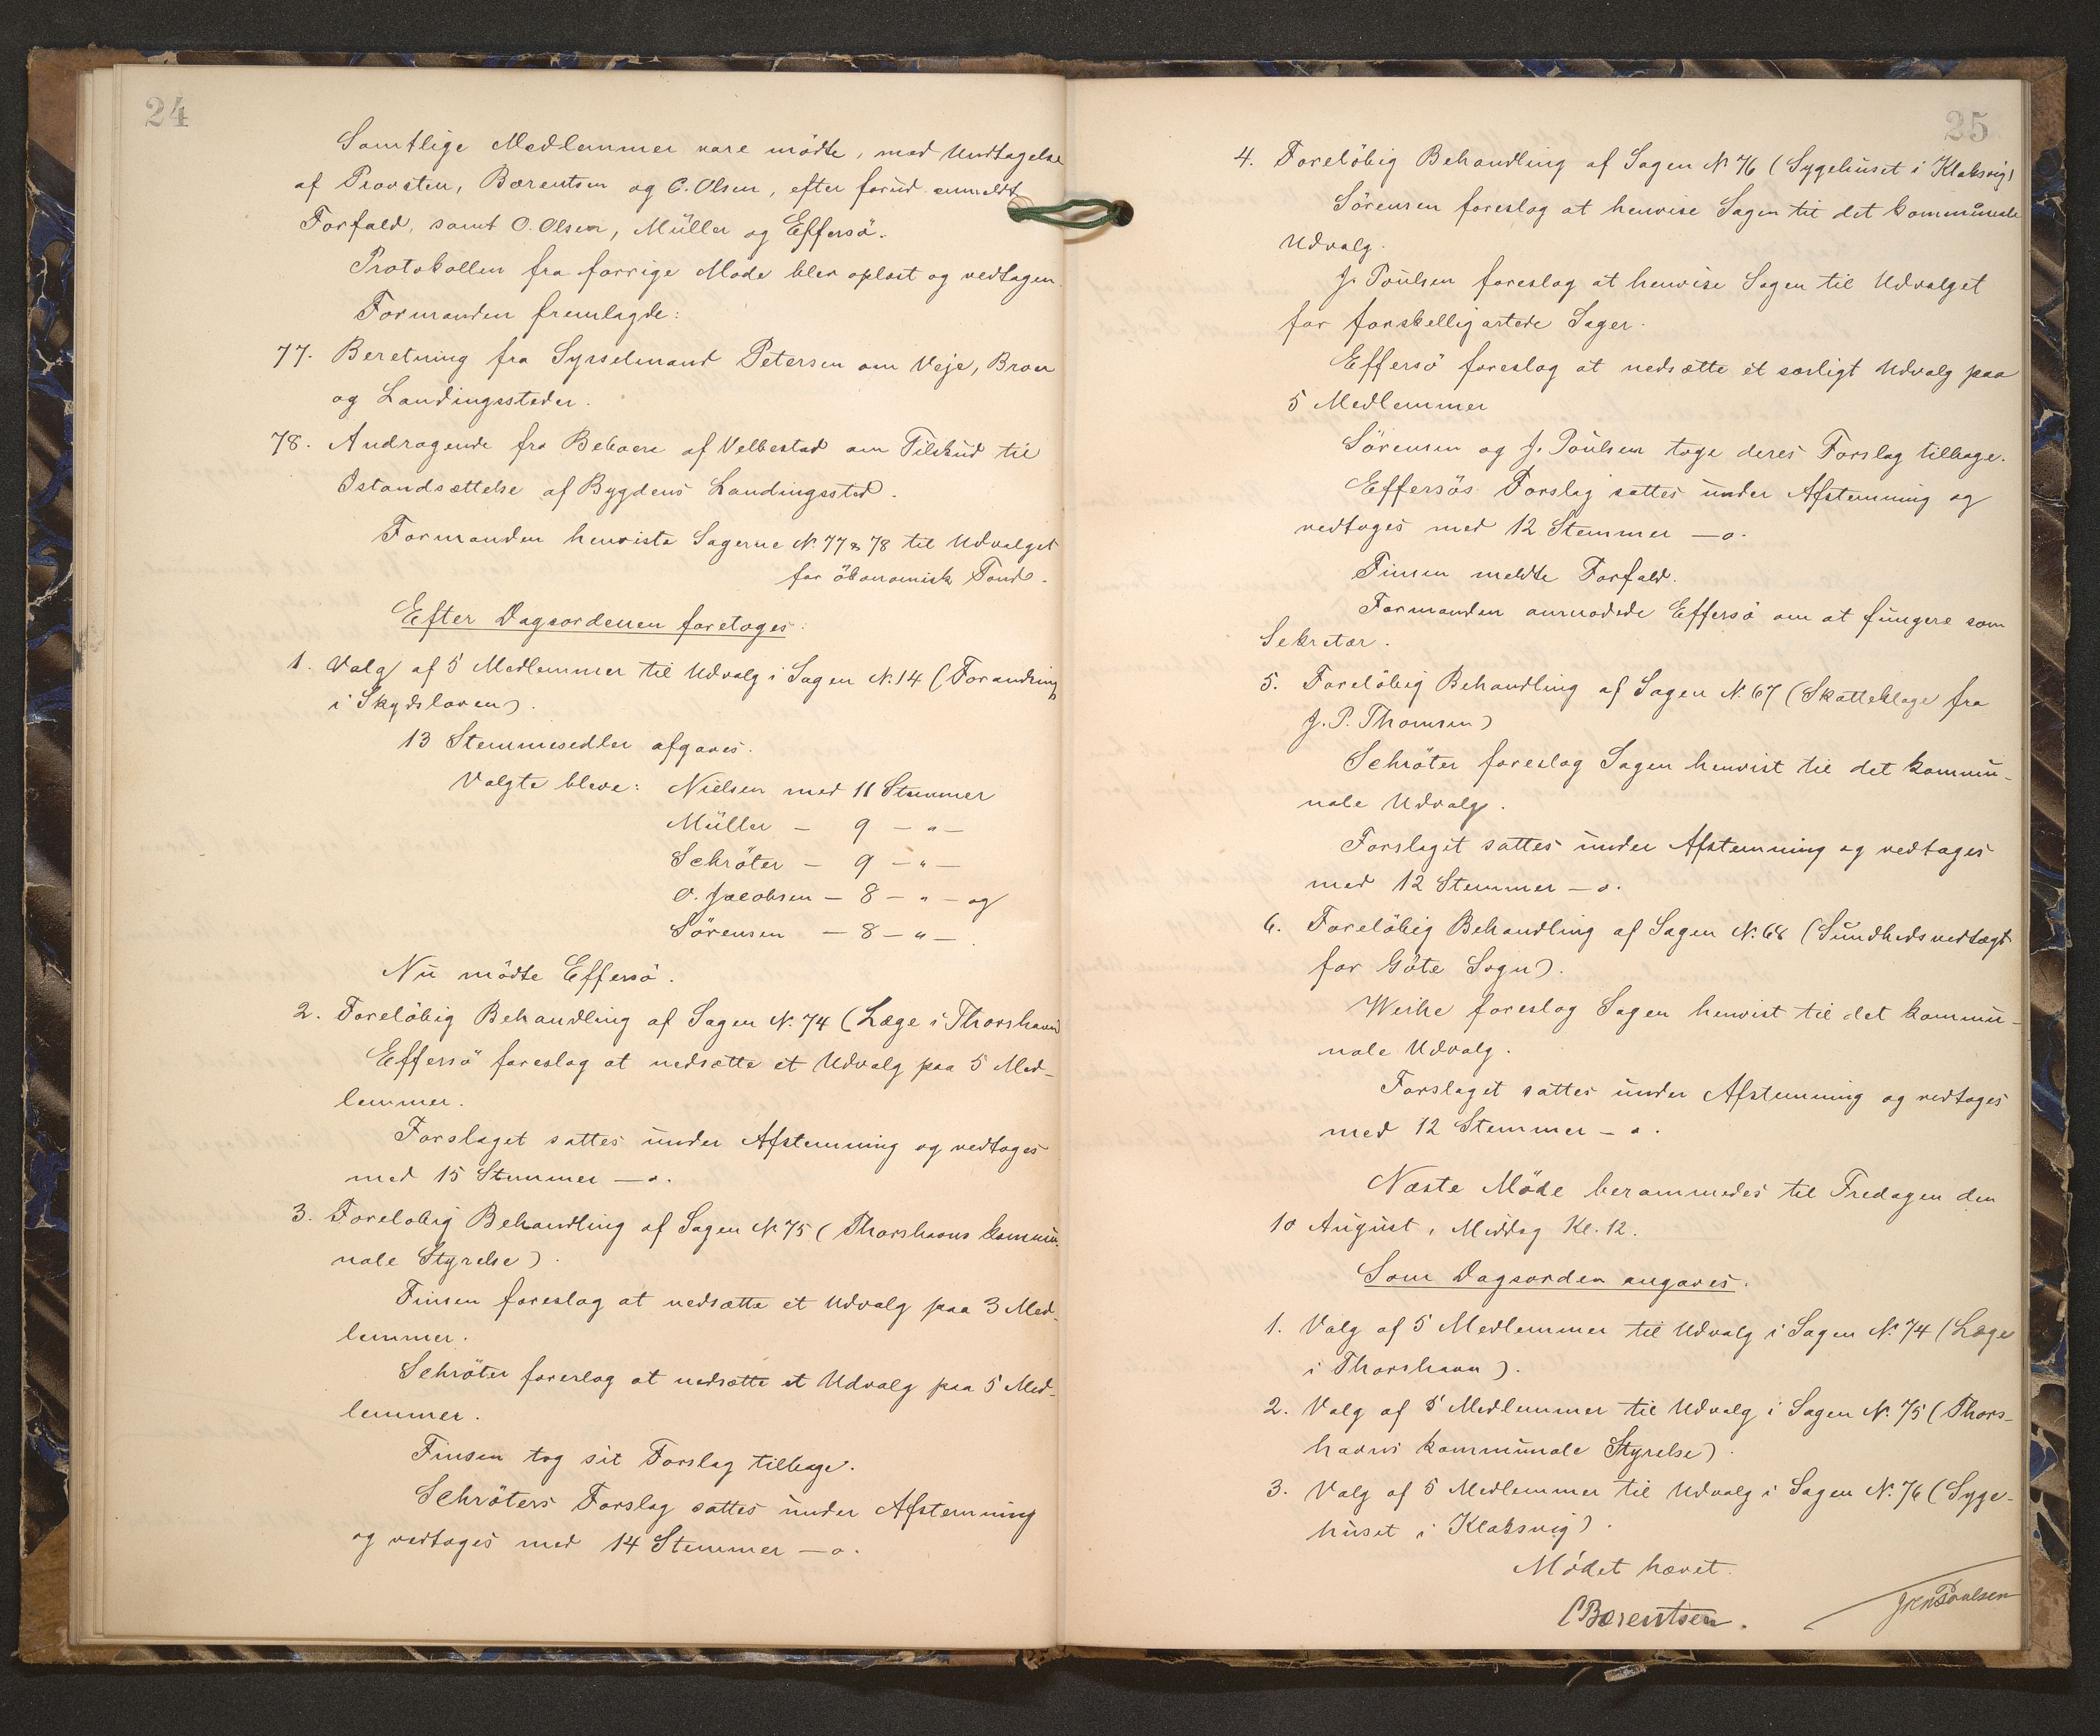 24
Samtlige Medlemmer vare mödte, med Undtagelse
af Provsten, Bærentsen og C. Olsen, efter forud anmeldt
Forfald, samt O. Olsen, Müller og Effersö.
Protokollen fra forrige Møde blev oplæst og vedtagen.
Formanden fremlagde:
77. Beretning fra Sysselmand Petersen om Veje, Broer
og Landingssteder.
78. Andragende fra Beboere af Velbestad om Tilskud til
Istandsættelse af Bygdens Landingssted.
Formanden henviste Sagerne N. 77 & 78 til Udvalget
for ökonomisk Fond.
Efter Dagsordenen foretoges:
1. Valg af 5 Medlemmer til Udvalg i Sagen N. 14 (Forandring
i Skydsloven).
13 Stemmesedler afgaves.
Valgte bleve: Nielsen med 11 Stemmer
Müller — 9 — " —
Schröter — 9 — " —
O. Jacobsen — 8 — " — og
Sörensen — 8 — " — .
Nu mödte Effersö.
2. Foreløbig Behandling af Sagen N. 74 (Læge i Thorshavn)
Effersö foreslog at nedsætte et Udvalg paa 5 Med-
lemmer.
Forslaget sattes under Afstemning og vedtoges
med 15 Stemmer — o.
3. Foreløbig Behandling af Sagen N. 75 (Thorshavns kommu-
nale Styrelse).
Finsen foreslog at nedsætte et Udvalg paa 3 Med-
lemmer.
Schröter foreslog at nedsætte et Udvalg paa 5 Med-
lemmer.
Finsen tog sit Forslag tilbage.
Schröters Forslag sattes under Afstemning
og vedtoges med 14 Stemmer — o.
25
4. Forelöbig Behandling af Sagen N. 76 (Sygehuset i Klaksvig)
Sörensen foreslog at henvise Sagen til det kommunale
Udvalg.
J. Poulsen foreslog at henvise Sagen til Udvalget
for forskelligartede Sager.
Effersö foreslog at nedsætte et særligt Udvalg paa
5 Medlemmer
Sörensen og J. Poulsen toge deres Forslag tilbage.
Effersös Forslag sattes under Afstemning og
vedtoges med 12 Stemmer — o.
Finsen meldte Forfald.
Formanden anmodede Effersö om at fungere som
Sekretær.
5. Forelöbig Behandling af Sagen N. 67 (Skatteklage fra
J. P. Thomsen)
Schröter foreslog Sagen henvist til det kommu-
nale Udvalg.
Forslaget sattes under Afstemning og vedtoges
med 12 Stemmer — o.
6. Forelöbig Behandling af Sagen N. 68 (Sundhedsvedtægt
for Göte Sogn).
Weihe foreslog Sagen henvist til det kommu-
nale Udvalg.
Forslaget sattes under Afstemning og vedtoges
med 12 Stemmer — o.
Næste Möde berammedes til Fredagen den
10 August, Middag Kl. 12.
Som Dagsorden angaves.
1. Valg af 5 Medlemmer til Udvalg i Sagen N. 74 (Læge
i Thorshavn).
2. Valg af 5 Medlemmer til Udvalg i Sagen N. 75 (Thors-
havns kommunale Styrelse).
3. Valg af 5 Medlemmer til Udvalg i Sagen N. 76 (Syge-
huset i Klaksvig).
Mödet hævet.
CBærentsen.
Poulsen